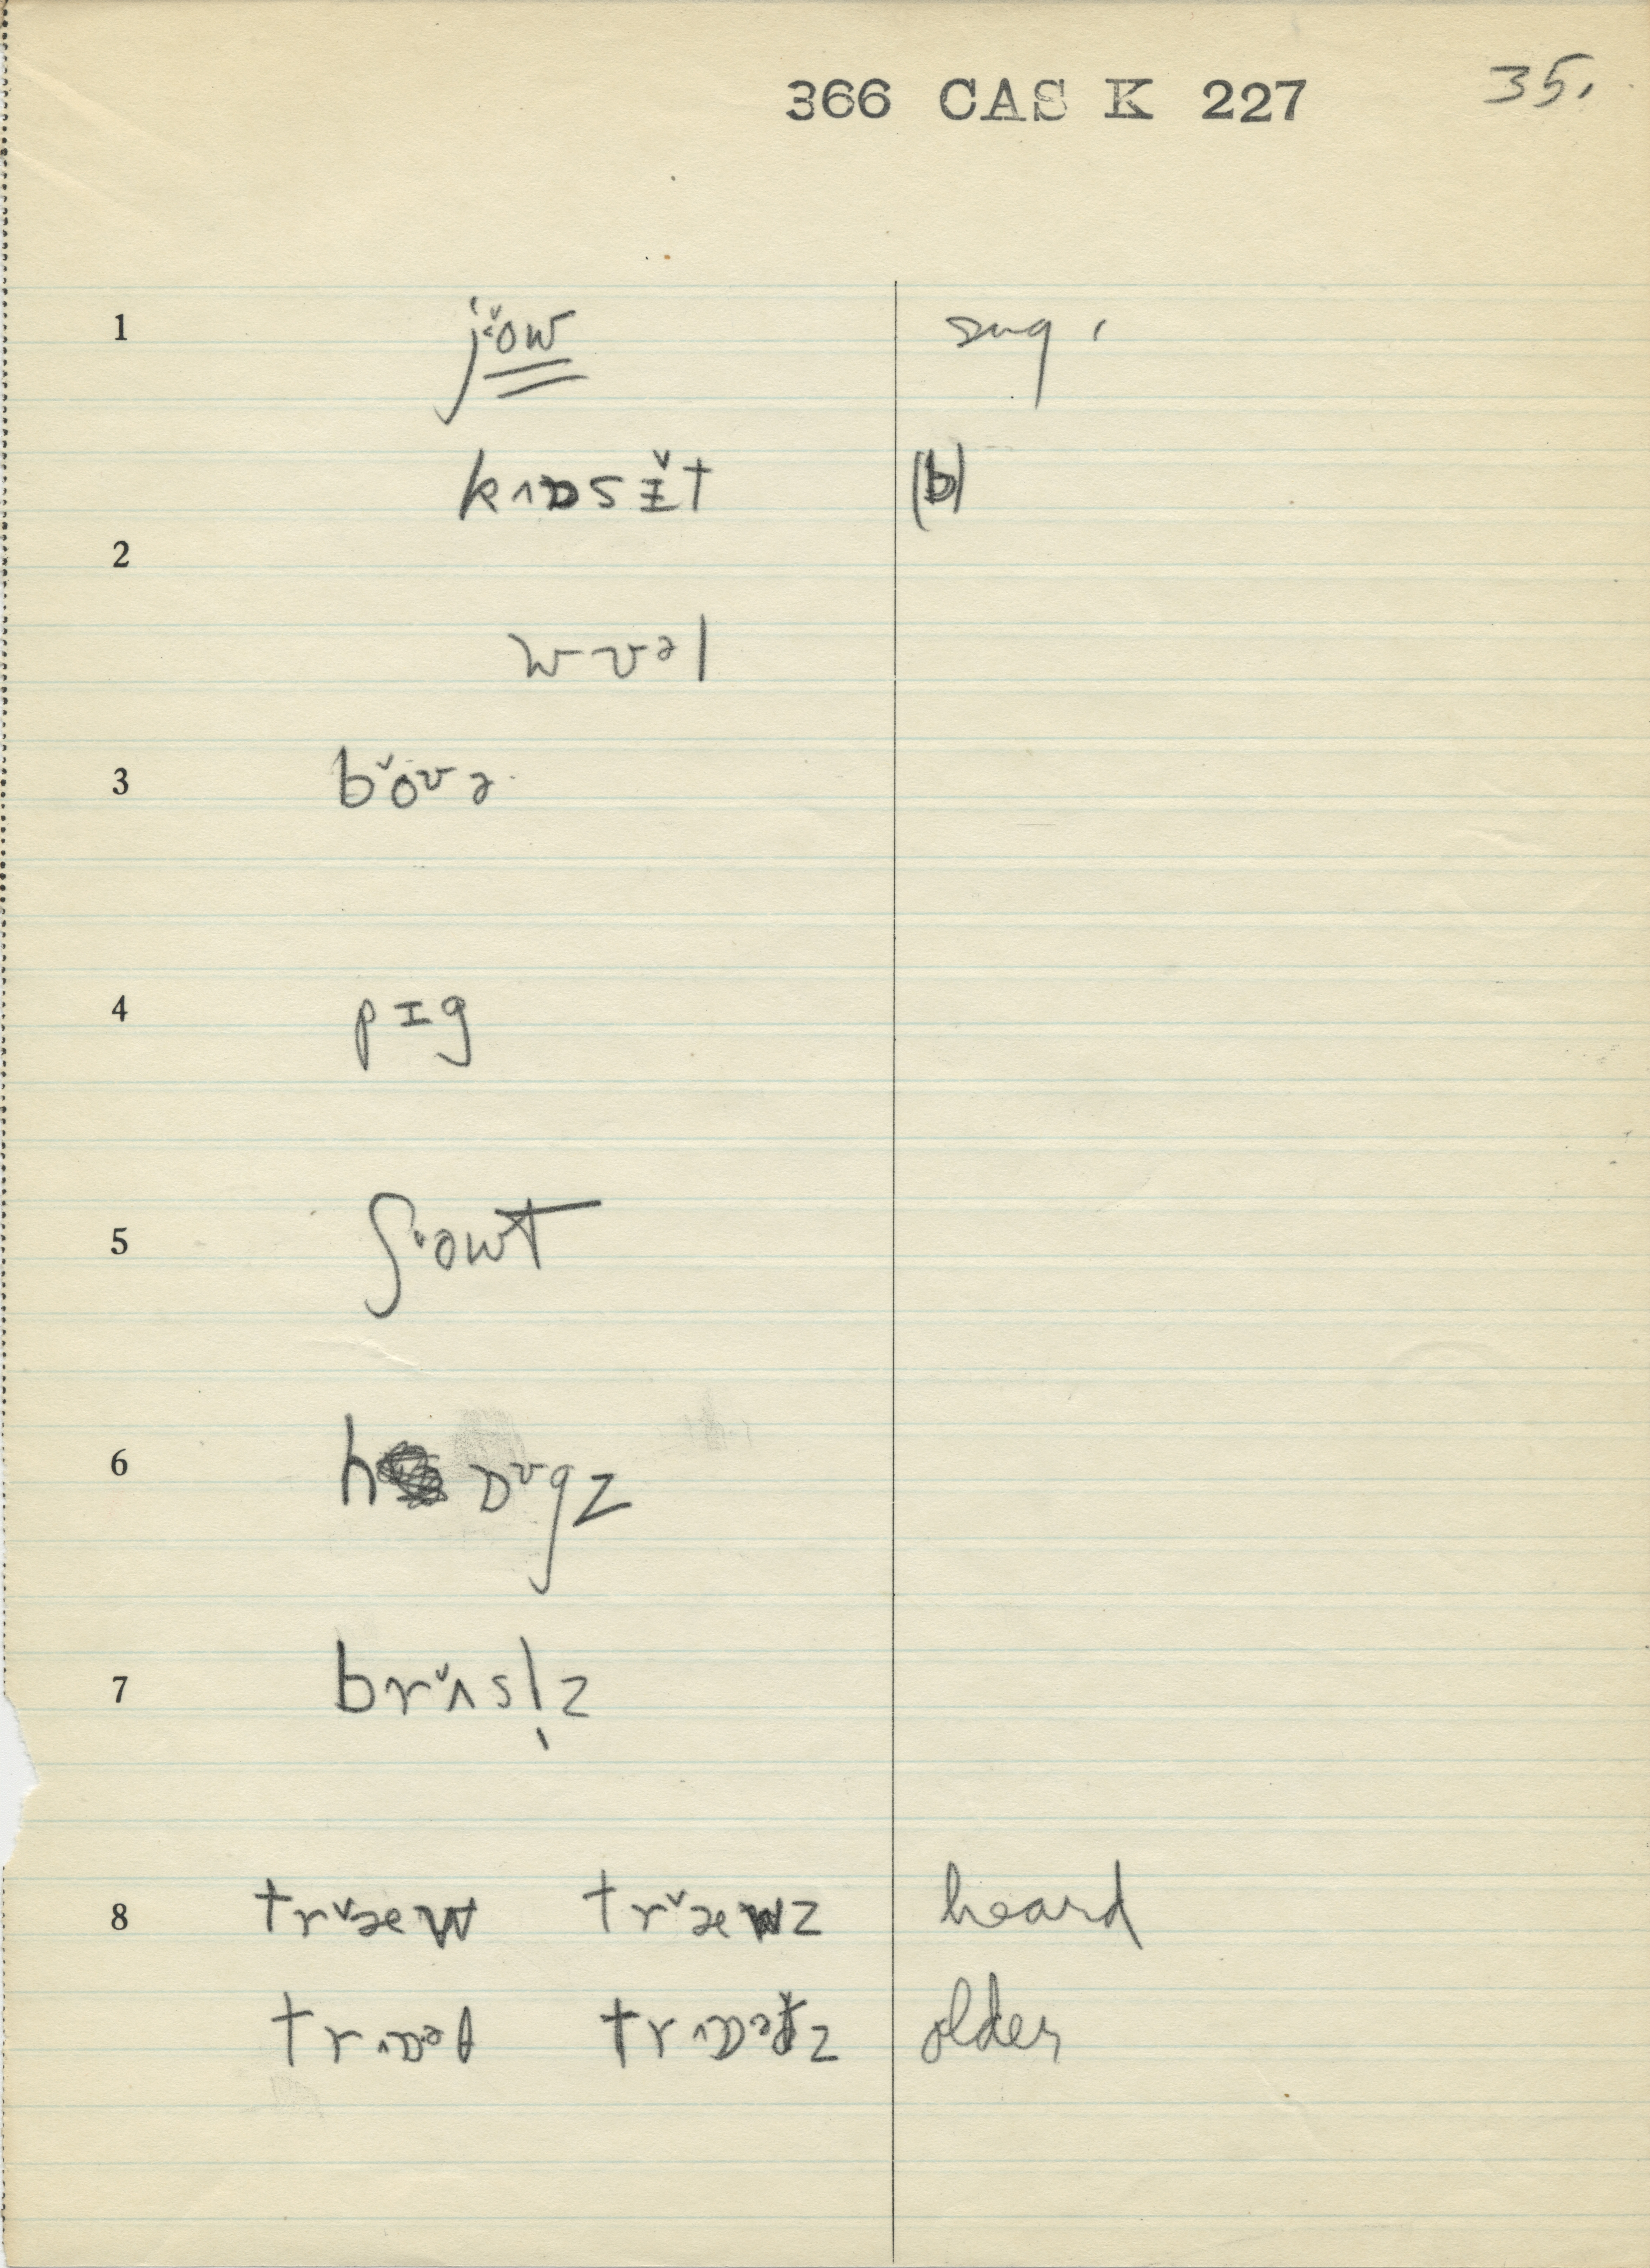 366 CAS K 227 35.
1 jˇow sug.
kʌɒsɪ̌t (b)
2
wvəl
3 bˇovə
4 pɪg
5 ʃˇowt
6 h ɒˇgz
7 brˇʌsl̩z
8 trˇæw trˇæwz heard
trʌɒəf trʌɒəfz older